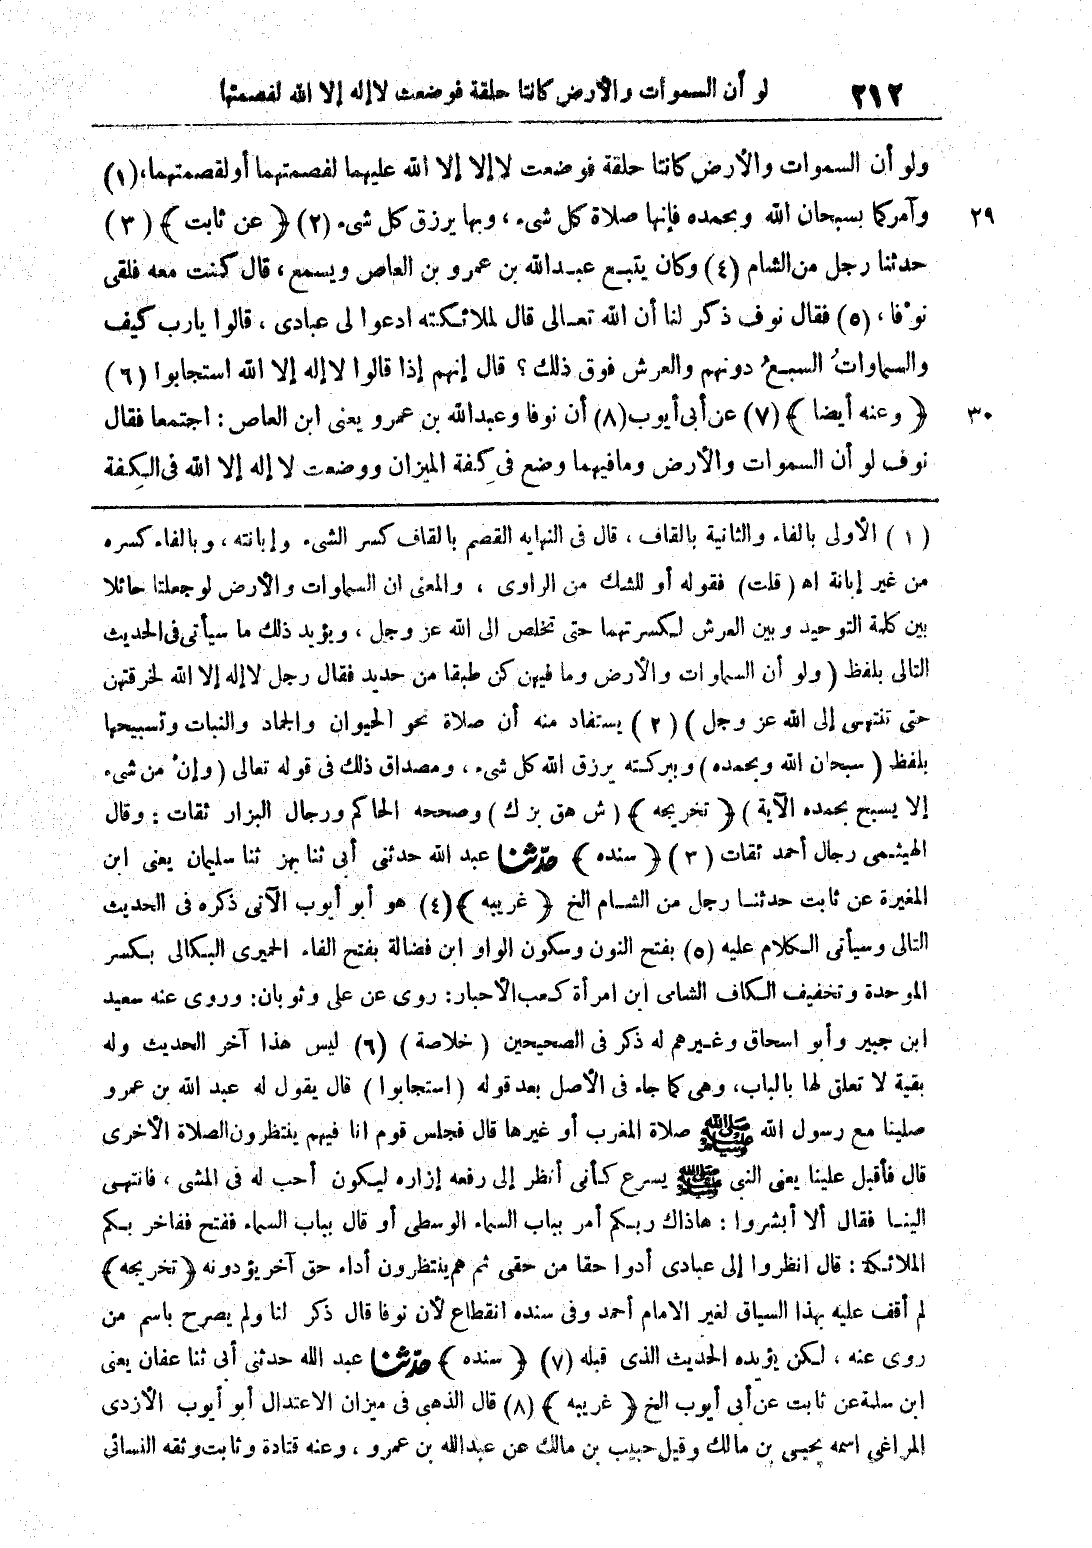 ٢١٢ لو أن السموات والأرض كانتا حلقة فوضعت لاإله إلا الله لفصمتها
ولو أن السموات والأرض كانتا حلقة فوضعت لاإلا إلا الله عليهما لفصمتهما أولقصمتهما،(١)
٢٩ وآمركما بسبحان الله وبحمده فإنها صلاة كل شىء ، وبها يرزق كل شىء (٢) ﴿ عن ثابت ﴾ (٣)
حدثنا رجل من الشام (٤) وكان يتبع عبدالله بن عمرو بن العاص ويسمع ، قال كنت معه فلقى
نوْفا ، (٥) فقال نوف ذكر لنا أن الله تعالى قال لملائكته ادعوا لى عبادى ، قالوا يارب كيف
والسماواتُ السبعُ دونهم والعرش فوق ذلك ؟ قال إنهم إذا قالوا لاإله إلا الله استجابوا (٦)
٣٠ ﴿ وعنه أيضا ﴾ (٧) عن أبى أيوب (٨) أن نوفا وعبدالله بن عمرو يعنى ابن العاص : اجتمعا فقال
نوف لو أن السموات والأرض ومافيهما وضع فى كِفة الميزان ووضعت لا إله إلا الله فى الكِفة
(١) الأولى بالفاء والثانية بالقاف ، قال فى النهايه القصم بالقاف كسر الشىء وإبانته ، وبالفاء كسره
من غير إبانة اه (قلت) فقوله أو للشك من الراوى ، والمعنى ان السماوات والأرض لوجعلتا حائلا
بين كلمة التوحيد وبين العرش لكسرتهما حتى تخلص الى الله عز وجل ، ويؤيد ذلك ما سيأتى فى الحديث
التالى بلفظ (ولو أن السماوات والأرض وما فيهن كن طبقا من حديد فقال رجل لاإله إلا الله لخرقتهن
حتى تنتهى إلى الله عز وجل) (٢) يستفاد منه أن صلاة نحو الحيوان والجماد والنبات وتسبيحها
بلفظ (سبحان الله وبحمده) وببركته يرزق الله كل شىء ، ومصداق ذلك فى قوله تعالى (وإنْ من شىء
إلا يسبح بحمده الآية) ﴿ تخريجه ﴾ (ش هق بز ك) وصححه الحاكم ورجال البزار ثقات : وقال
الهيثمى رجال أحمد ثقات (٣) ﴿ سنده ﴾ حدّثنا عبد الله حدثنى أبى ثنا بهز ثنا سليمان يعنى ابن
المغيرة عن ثابت حدثنا رجل من الشام الخ ﴿ غريبه ﴾ (٤) هو أبو أيوب الآتى ذكره فى الحديث
التالى وسيأتى الكلام عليه (٥) بفتح النون وسكون الواو ابن فضالة بفتح الفاء الحميرى البكالى بكسر
الموحدة وتخفيف الكاف الشامى ابن امرأة كعب الأحبار: روى عن على وثوبان: وروى عنه سعيد
ابن جبير وأبو اسحاق وغيرهم له ذكر فى الصحيحين (خلاصة) (٦) ليس هذا آخر الحديث وله
بقية لا تعلق لها بالباب، وهى كما جاء فى الأصل بعد قوله (استجابوا) قال يقول له عبد الله بن عمرو
صلينا مع رسول الله ﷺ صلاة المغرب أو غيرها قال فجلس قوم انا فيهم ينتظرون الصلاة الأخرى
قال فأقبل علينا يعنى النبى ﷺ يسرع كأنى أنظر إلى رفعه إزاره ليكون أحب له فى المشى ، فانتهى
الينا فقال ألا أبشروا : هاذاك ربكم أمر بباب السماء الوسطى أو قال بباب السماء ففتح ففاخر بكم
الملائكة : قال انظروا إلى عبادى أدوا حقا من حقى ثم هم ينتظرون أداء حق آخر يؤدونه ﴿ تخريجه ﴾
لم أقف عليه بهذا السياق لغير الامام أحمد وفى سنده انقطاع لأن نوفا قال ذكر لنا ولم يصرح باسم من
روى عنه ، لكن يؤيده الحديث الذى قبله (٧) ﴿ سنده ﴾ حدّثنا عبد الله حدثنى أبى ثنا عفان يعنى
ابن سلمة عن ثابت عن أبى أيوب الخ ﴿ غريبه ﴾ (٨) قال الذهبى فى ميزان الاعتدال أبو أيوب الأزدى
المراغى اسمه يحيى بن مالك وقيل حبيب بن مالك عن عبدالله بن عمرو ، وعنه قتادة وثابت وثقه النسائى